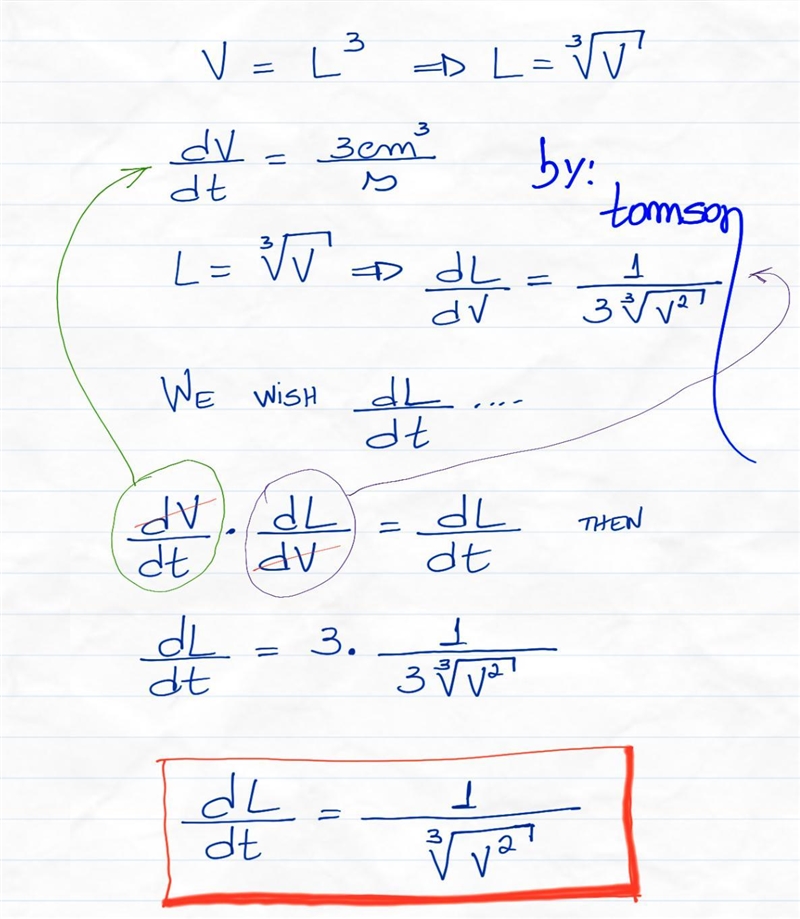 V = L³ ⇒ L = ∛V
dV/dt = 3cm³/s
by:
tomson
L = ∛V ⇒ dL/dV = 1/(3∛V²)
WE WISH dL/dt ....
dV/dt · dL/dV = dL/dt THEN
dL/dt = 3 · 1/(3∛V²)
dL/dt = 1/∛V²